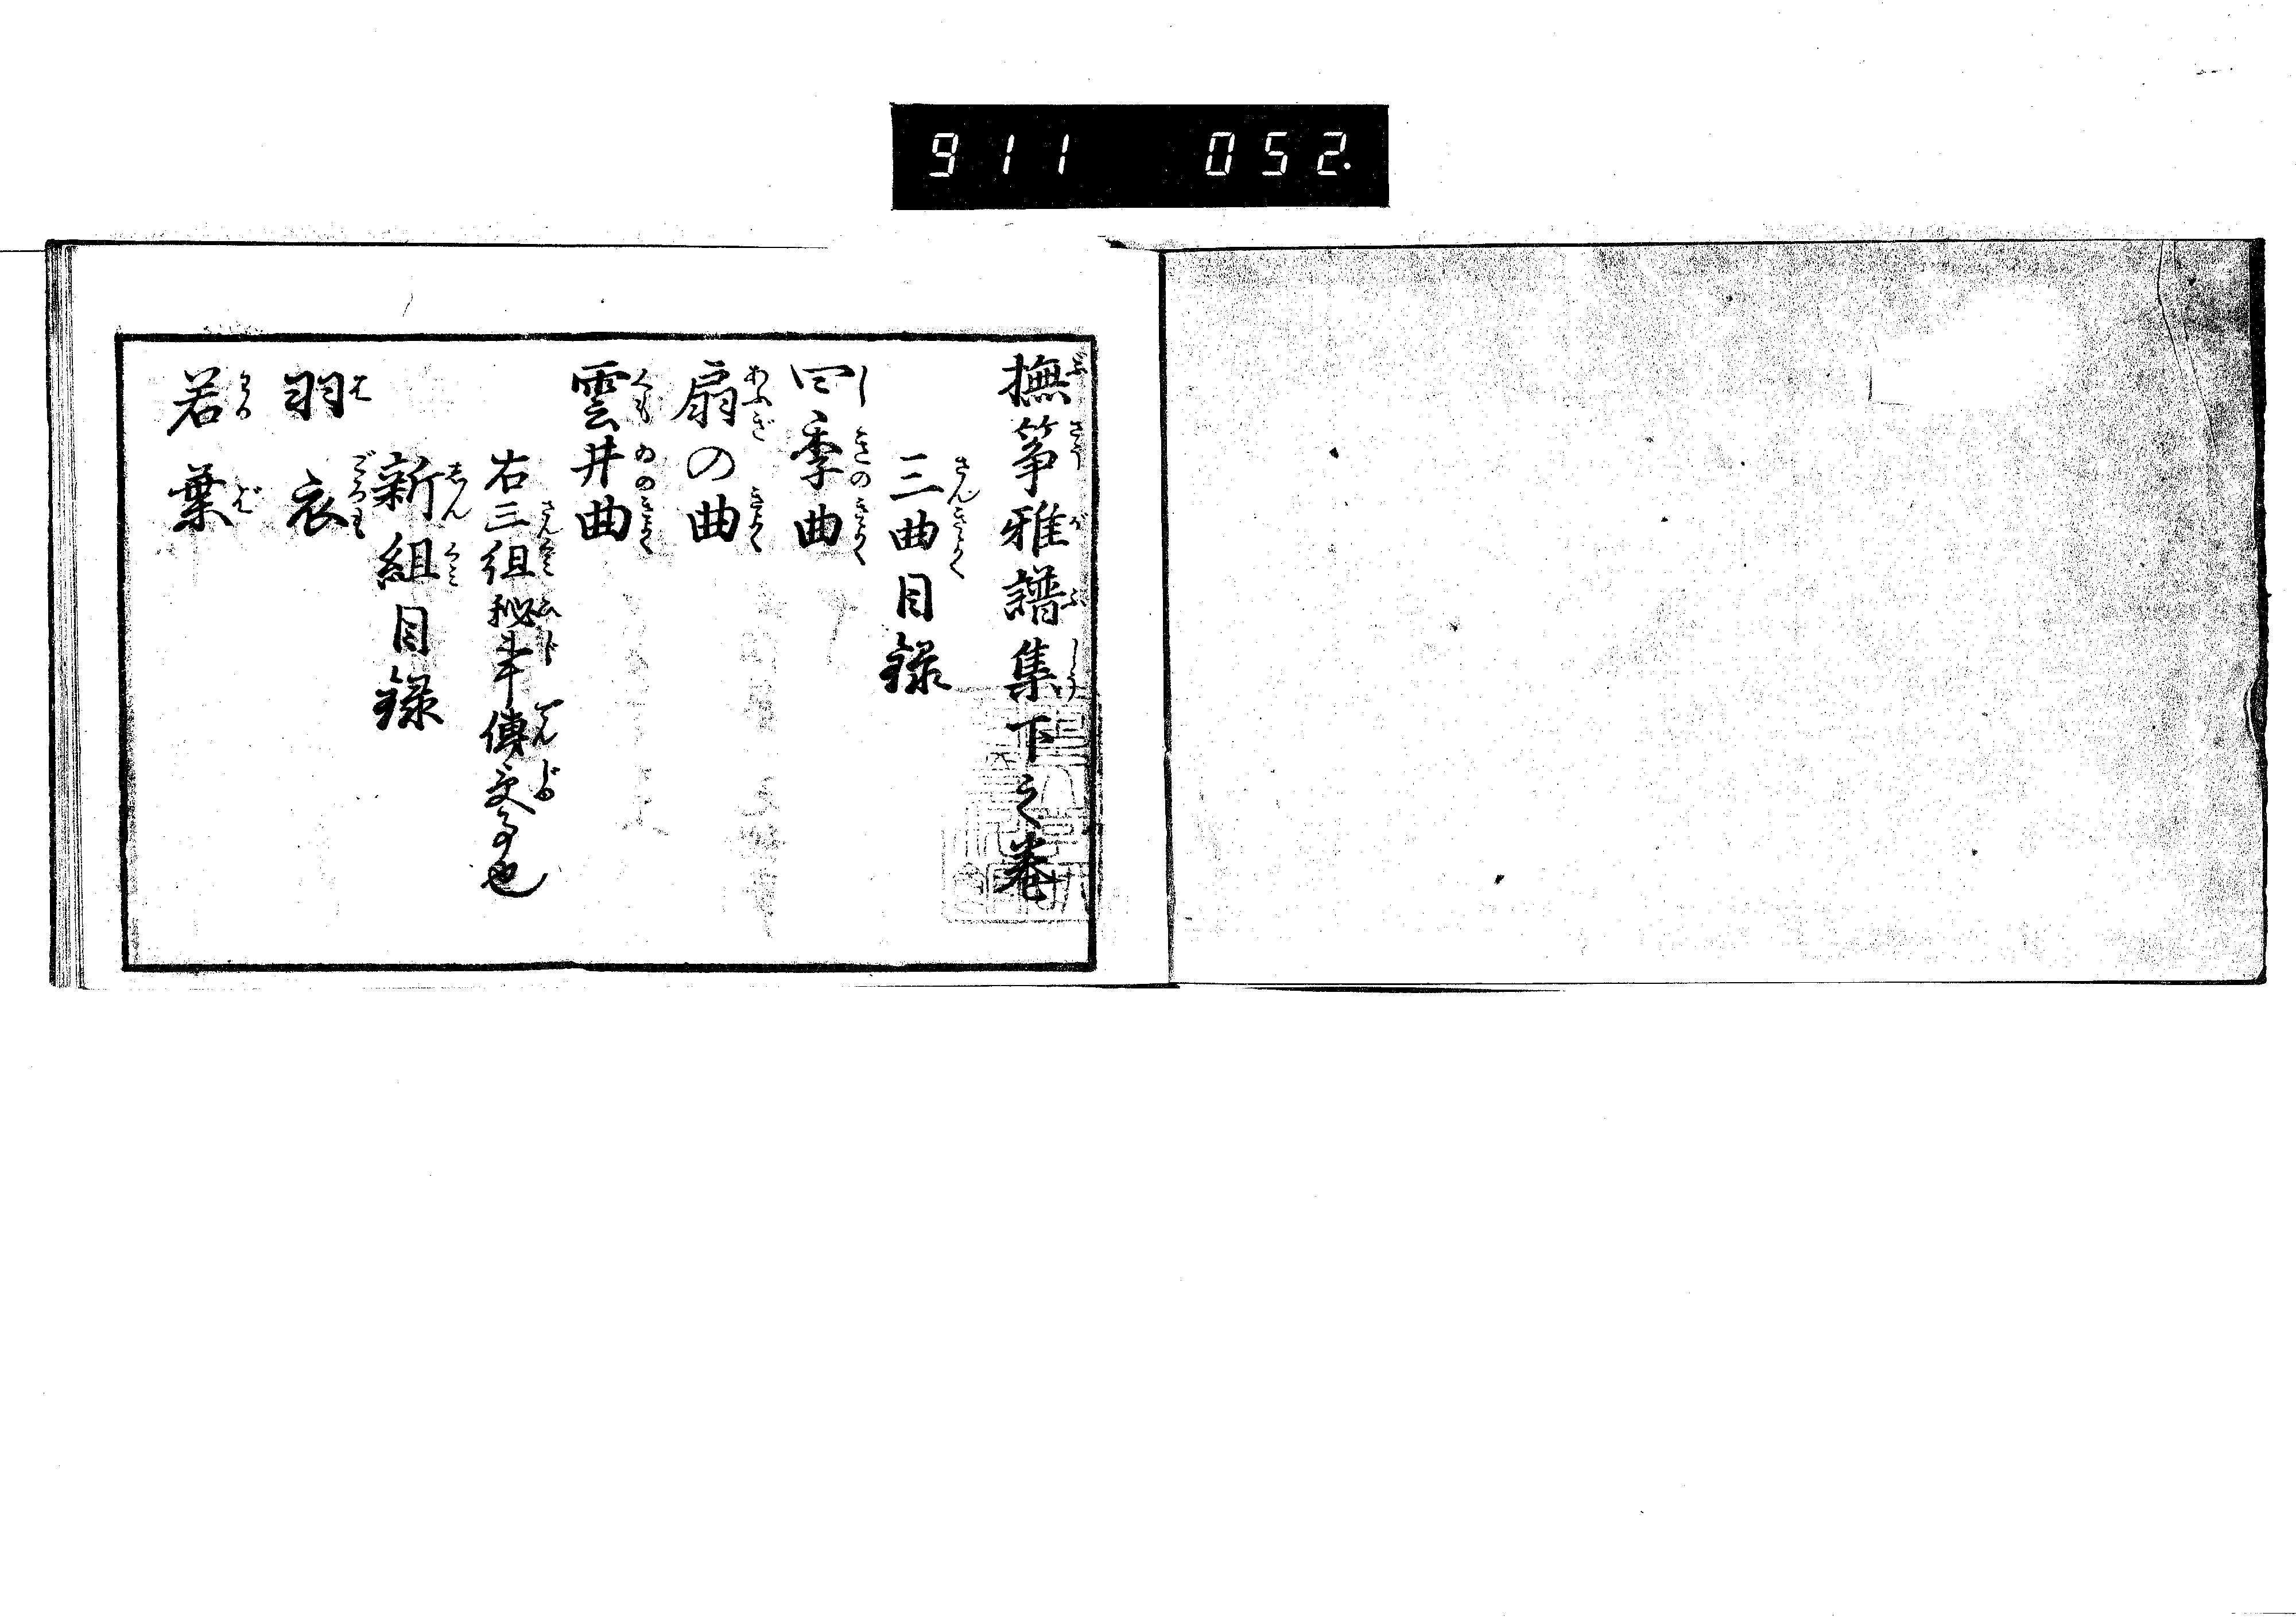 911 052.
撫箏雅譜集下之巻
三曲目録
四季曲
扇の曲
雲井曲
右三組秘事傳受事也
新組目録
羽衣
若葉